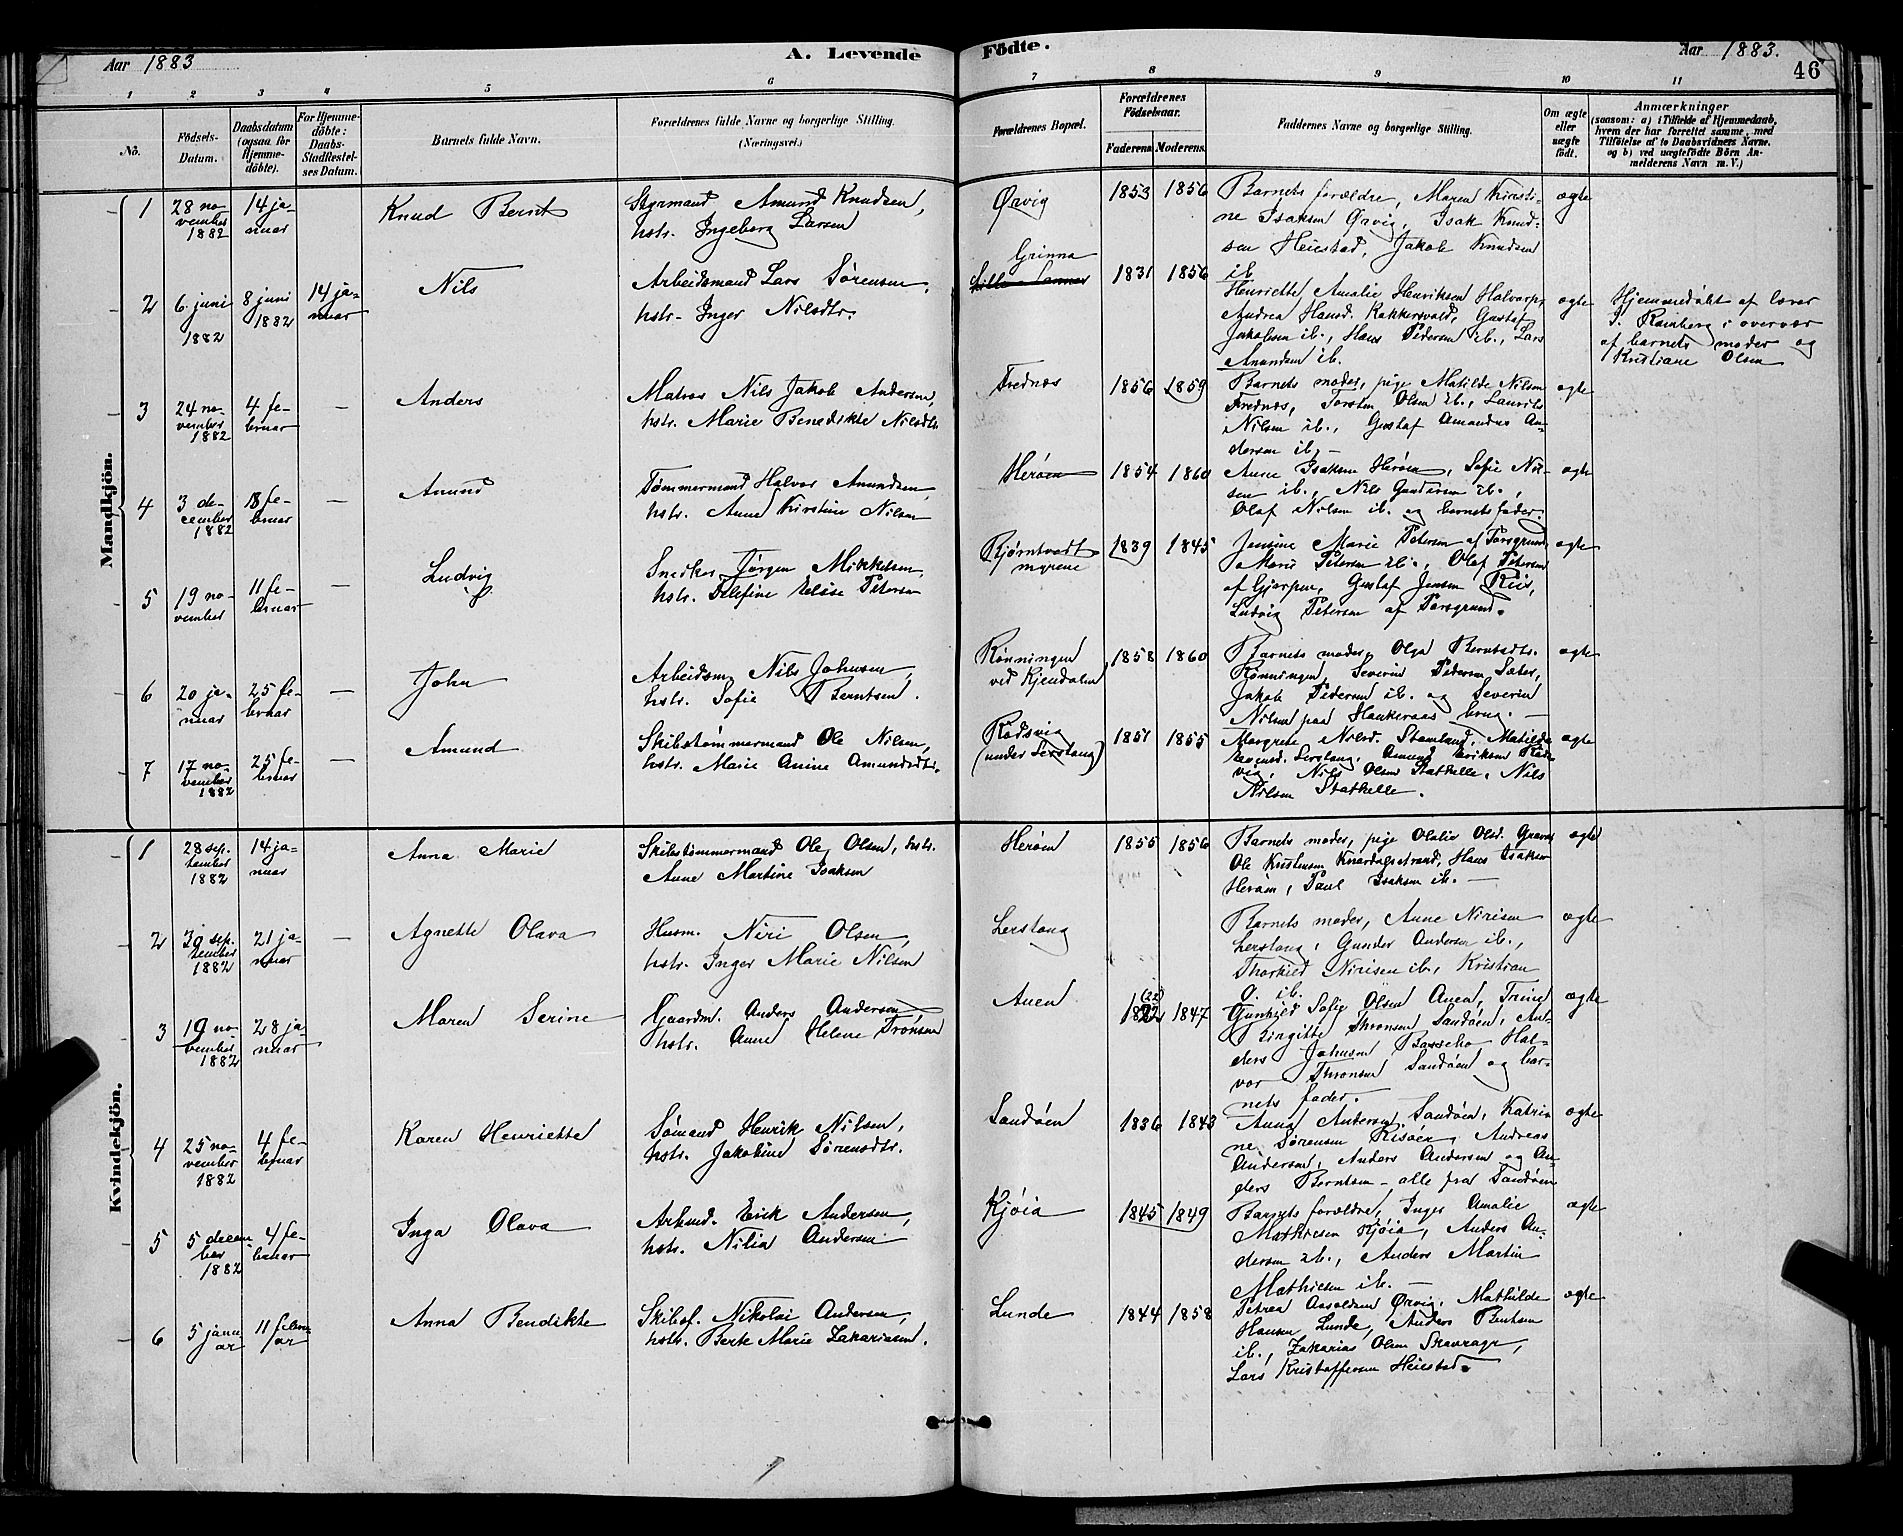 Aar 1883
A. Levende Fødte.
Aar 1883.
46
1 2 3 4 5 6 7 8 9 10 11
No.
Fødsels-Datum.
Daabsdatum (ogsaa for Hjemmedøbte).
For Hjemmedøbte: Daabs-Stadfæstelses Datum.
Barnets fulde Navn.
Forældrenes fulde Navne og borgerlige Stilling.
(Næringsvei.)
Forældrenes Bopæl.
Forældrenes Fødselsaar.
Faderens. Moderens.
Faddernes Navne og borgerlige Stilling.
Om ægte eller uægte født.
Anmærkninger
(saasom: a) i Tilfælde af Hjemmedaab,
hvem der har forrettet samme, med
Tilføielse af to Daabsvidners Navne.
og b) ved uægtefødte Børn An-
melderens Navn m. V.)
Mandkjøn.
1 28 november 1882 14 januar
Knud Bernt
Styrmand Amund Knudsen,
hstr. Ingeborg Larsen
Ørvig
1853 1856
Barnets forældre, Maren Kirsti-
ne Isaksen Ørvig, Isak Knud-
sen Heiestad, Jakob Knudsen
ib.
ægte
2 6 juni 1882 8 juni 1882 14 januar
Nils
Arbeidsmand Lars Sørensen,
hstr. Inger Nilsdtr.
Grinna
1831 1856
Henriette Amalie Henriksen
Andrea Hansd. Kokkersvold, Gustaf
Jakobsen ib., Hans Pedersen ib., Lars
Amundsen ib.
ægte
Hjemmedøbt af lærer
J. Romberg i overvær
af barnets moder og
Kristiane Olsen
3 24 november 1882 4 februar —
Anders
Matros Nils Jakob Andersen,
hstr. Marie Benedikte Nilsdtr.
Frednæs
1856 1859
Barnets moder, pige Matilde Nilsen
Frednæs, Torsten Olsen ib., Laurits
Nilsen ib., Gustaf Amandus An-
dersen ib. —
ægte
4 3 december 1882 18 februar —
Amund
Tømmermand Halvor Amundsen,
hstr. Anne Kirstine Nilsen
Herøen
1854 1860
Anne Isaksen Herøen, Sofie Nil-
sen ib., Nils Gundersen ib.,
Olaf Nilsen ib. og barnets fader.
ægte
5 19 november 11 februar —
Ludvig
Snedker Jørgen Mikkelsen,
hstr. Delefine Elise Petersen
Bjørntvedt
myrene
1839 1845
Jensine Marie Petersen af Porsgrund,
Marie Petersen ib., Olaf Petersen
af Gjerpen, Gustaf Jensen Riis,
Ludvig Petersen af Porsgrund.
ægte
6 20 januar 25 februar —
John
Arbeidsm. Nils Johnsen,
hstr. Sofie Berntsen.
Rønningen
ved Kjendalen
1858 1860
Barnets moder, Olga Berntsdtr.
Rønningen, Severin Pedersen Sæter,
Jakob Pedersen ib. og Severin
Nilsen paa Haukeraas brug. —
ægte
7 17 november 1882 25 februar —
Amund
Skibstømmermand Ole Nilsen,
hstr. Marie Anine Amundsdtr.
Rødsvig
(under Lerstang)
1851 1855
Margrete Nilsd. Stamland, Matilde
Lerstang, Amund Eriksen Røds-
vig, Nils Olsen Stathelle, Nils
Nilsen Stathelle.
ægte
Kvindekjøn.
1 28 september 1882 14 januar
Anna Marie
Skibstømmermand Ole Olsen, hstr.
Anne Martine Isaksen
Herøen
1855 1856
Barnets moder, pige Olalie Olsd. Grava
Ole Kristensen Knardalsstrand, Hans Isaksen
Herøen, Paul Isaksen ib. —
ægte
2 30 september 1882 21 januar —
Agnette Olava
Husm. Niri Olsen,
hstr. Inger Marie Nilsen
Lerstang
Barnets moder, Anne Nirisen
Lerstang, Gunder Andersen ib.,
Thorkild Nirisen ib., Kristian
O. ib.
ægte
3 19 november 1882 28 januar
Maren Serine
Gaardm. Anders Andersen
hstr. Anne Helene Trønsen
Auen
(22)
1822 1847
Gunhild Sofie Olsen Auen, Trine
Birgitte Thronsen Sandøen, An-
ders Johnsen Bassebo, Hal-
vor Thronsen Sandøen og bar-
nets fader.
ægte
4 25 november 1882 4 februar
Karen Henriette
Sømand Henrik Nilsen,
hstr. Jakobine Sørensdtr.
Sandøen
1836 1843
Anna Andersen Sandøen, Katri-
ne Sørensen Risøen, Andreas
Andersen, Anders Andersen og An-
ders Berntsen — alle fra Sandøen
ægte
5 5 december 1882 4 februar
Inga Olava
Arbmd. Erik Andersen,
hstr. Nilia Andersen
Kjøia
1845 1849
Barnets forældre, Inger Amalie
Mathiesen Kjøia, Anders An-
dersen ib., Anders Martin
Mathiesen ib. —
ægte
6 5 januar 11 februar
Anna Bendikte
Skibsf. Nikolai Andersen,
hstr. Berte Marie Zakariasen.
Lunde
1844 1858
Petrea Aasoldsen Ørvig, Mathilde
Hansen Lunde, Anders Bentsen
ib., Zakarias Olsen Skavrager,
Lars Kristoffersen Heiestad.
ægte